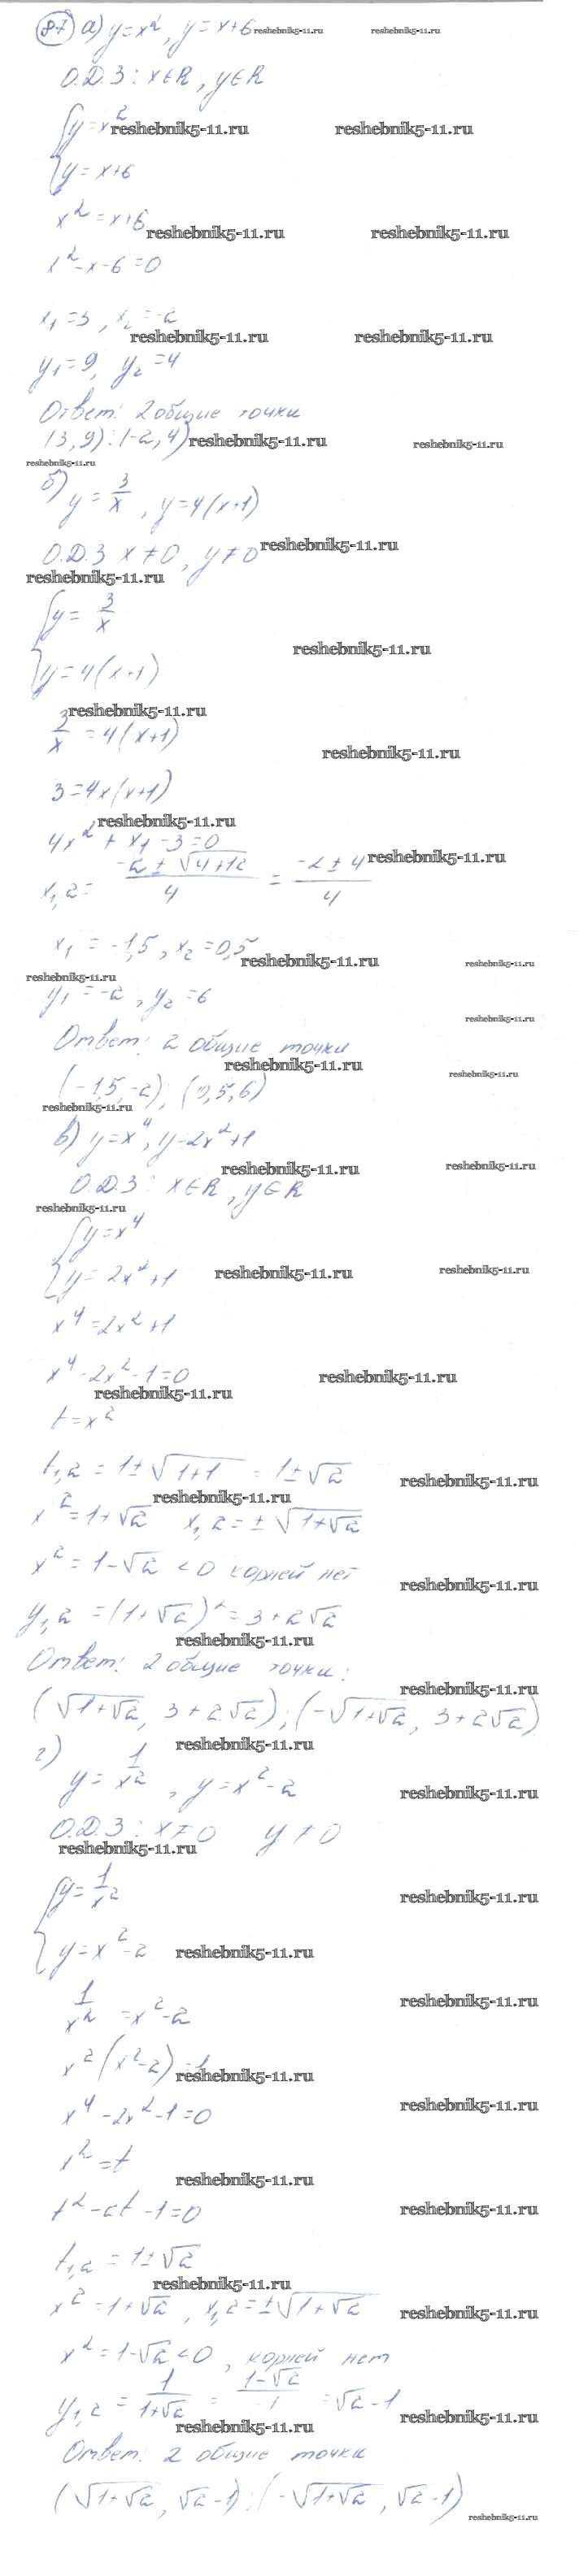 87 а) y=x², y=x+6 reshebnik5-11.ru reshebnik5-11.ru
О.Д.З: x∈R, y∈R
{y=x² reshebnik5-11.ru reshebnik5-11.ru
{y=x+6
x²=x+6
reshebnik5-11.ru reshebnik5-11.ru
x²-x-6=0
x₁=3, x₂=-2
reshebnik5-11.ru reshebnik5-11.ru
y₁=9, y₂=4
Ответ: 2 общие точки
(3,9);(-2,4) reshebnik5-11.ru reshebnik5-11.ru
reshebnik5-11.ru
б) y=3/x, y=4(x+1)
О.Д.З x≠0, y≠0 reshebnik5-11.ru
reshebnik5-11.ru
{y=3/x
reshebnik5-11.ru
{y=4(x+1)
reshebnik5-11.ru
3/x=4(x+1)
reshebnik5-11.ru
3=4x(x+1)
reshebnik5-11.ru
4x²+x4-3=0
x₁,₂= (-2±√4+12)/4 = (-2±4)/4 reshebnik5-11.ru
x₁=-1,5, x₂=0,5
reshebnik5-11.ru reshebnik5-11.ru
reshebnik5-11.ru
y₁=-2, y₂=6
reshebnik5-11.ru
Ответ: 2 общие точки
reshebnik5-11.ru reshebnik5-11.ru
(-1,5,-2); (0,5,6)
reshebnik5-11.ru
в) y=x⁴, y=2x²+1
reshebnik5-11.ru reshebnik5-11.ru
О.Д.З: x∈R, y∈R
reshebnik5-11.ru
{y=x⁴
{y=2x²+1 reshebnik5-11.ru reshebnik5-11.ru
x⁴=2x²+1
x⁴-2x²-1=0 reshebnik5-11.ru
reshebnik5-11.ru
t=x²
t₁,₂=1±√1+1=1±√2 reshebnik5-11.ru
reshebnik5-11.ru
x²=1+√2 x₁,₂=±√1+√2
x²=1-√2<0 корней нет
reshebnik5-11.ru
y₁,₂=(1+√2)²=3+2√2
reshebnik5-11.ru
Ответ: 2 общие точки:
reshebnik5-11.ru
(√1+√2, 3+2√2);(-√1+√2, 3+2√2)
reshebnik5-11.ru
г) y=1/x², y=x²-2 reshebnik5-11.ru
О.Д.З: x≠0 y≠0
reshebnik5-11.ru
{y=1/x² reshebnik5-11.ru
{y=x²-2 reshebnik5-11.ru
1/x²=x²-2 reshebnik5-11.ru
x²(x²-2)=1
reshebnik5-11.ru
x⁴-2x²-1=0 reshebnik5-11.ru
x²=t
reshebnik5-11.ru
t²-2t-1=0 reshebnik5-11.ru
t₁,₂=1±√2
reshebnik5-11.ru
x²=1+√2, x₁,₂=±√1+√2 reshebnik5-11.ru
x²=1-√2<0, корней нет
y₁,₂=1/(1+√2)=(1-√2)/-1=√2-1 reshebnik5-11.ru
reshebnik5-11.ru
Ответ: 2 общие точки
(√1+√2, √2-1);(-√1+√2, √2-1)
reshebnik5-11.ru